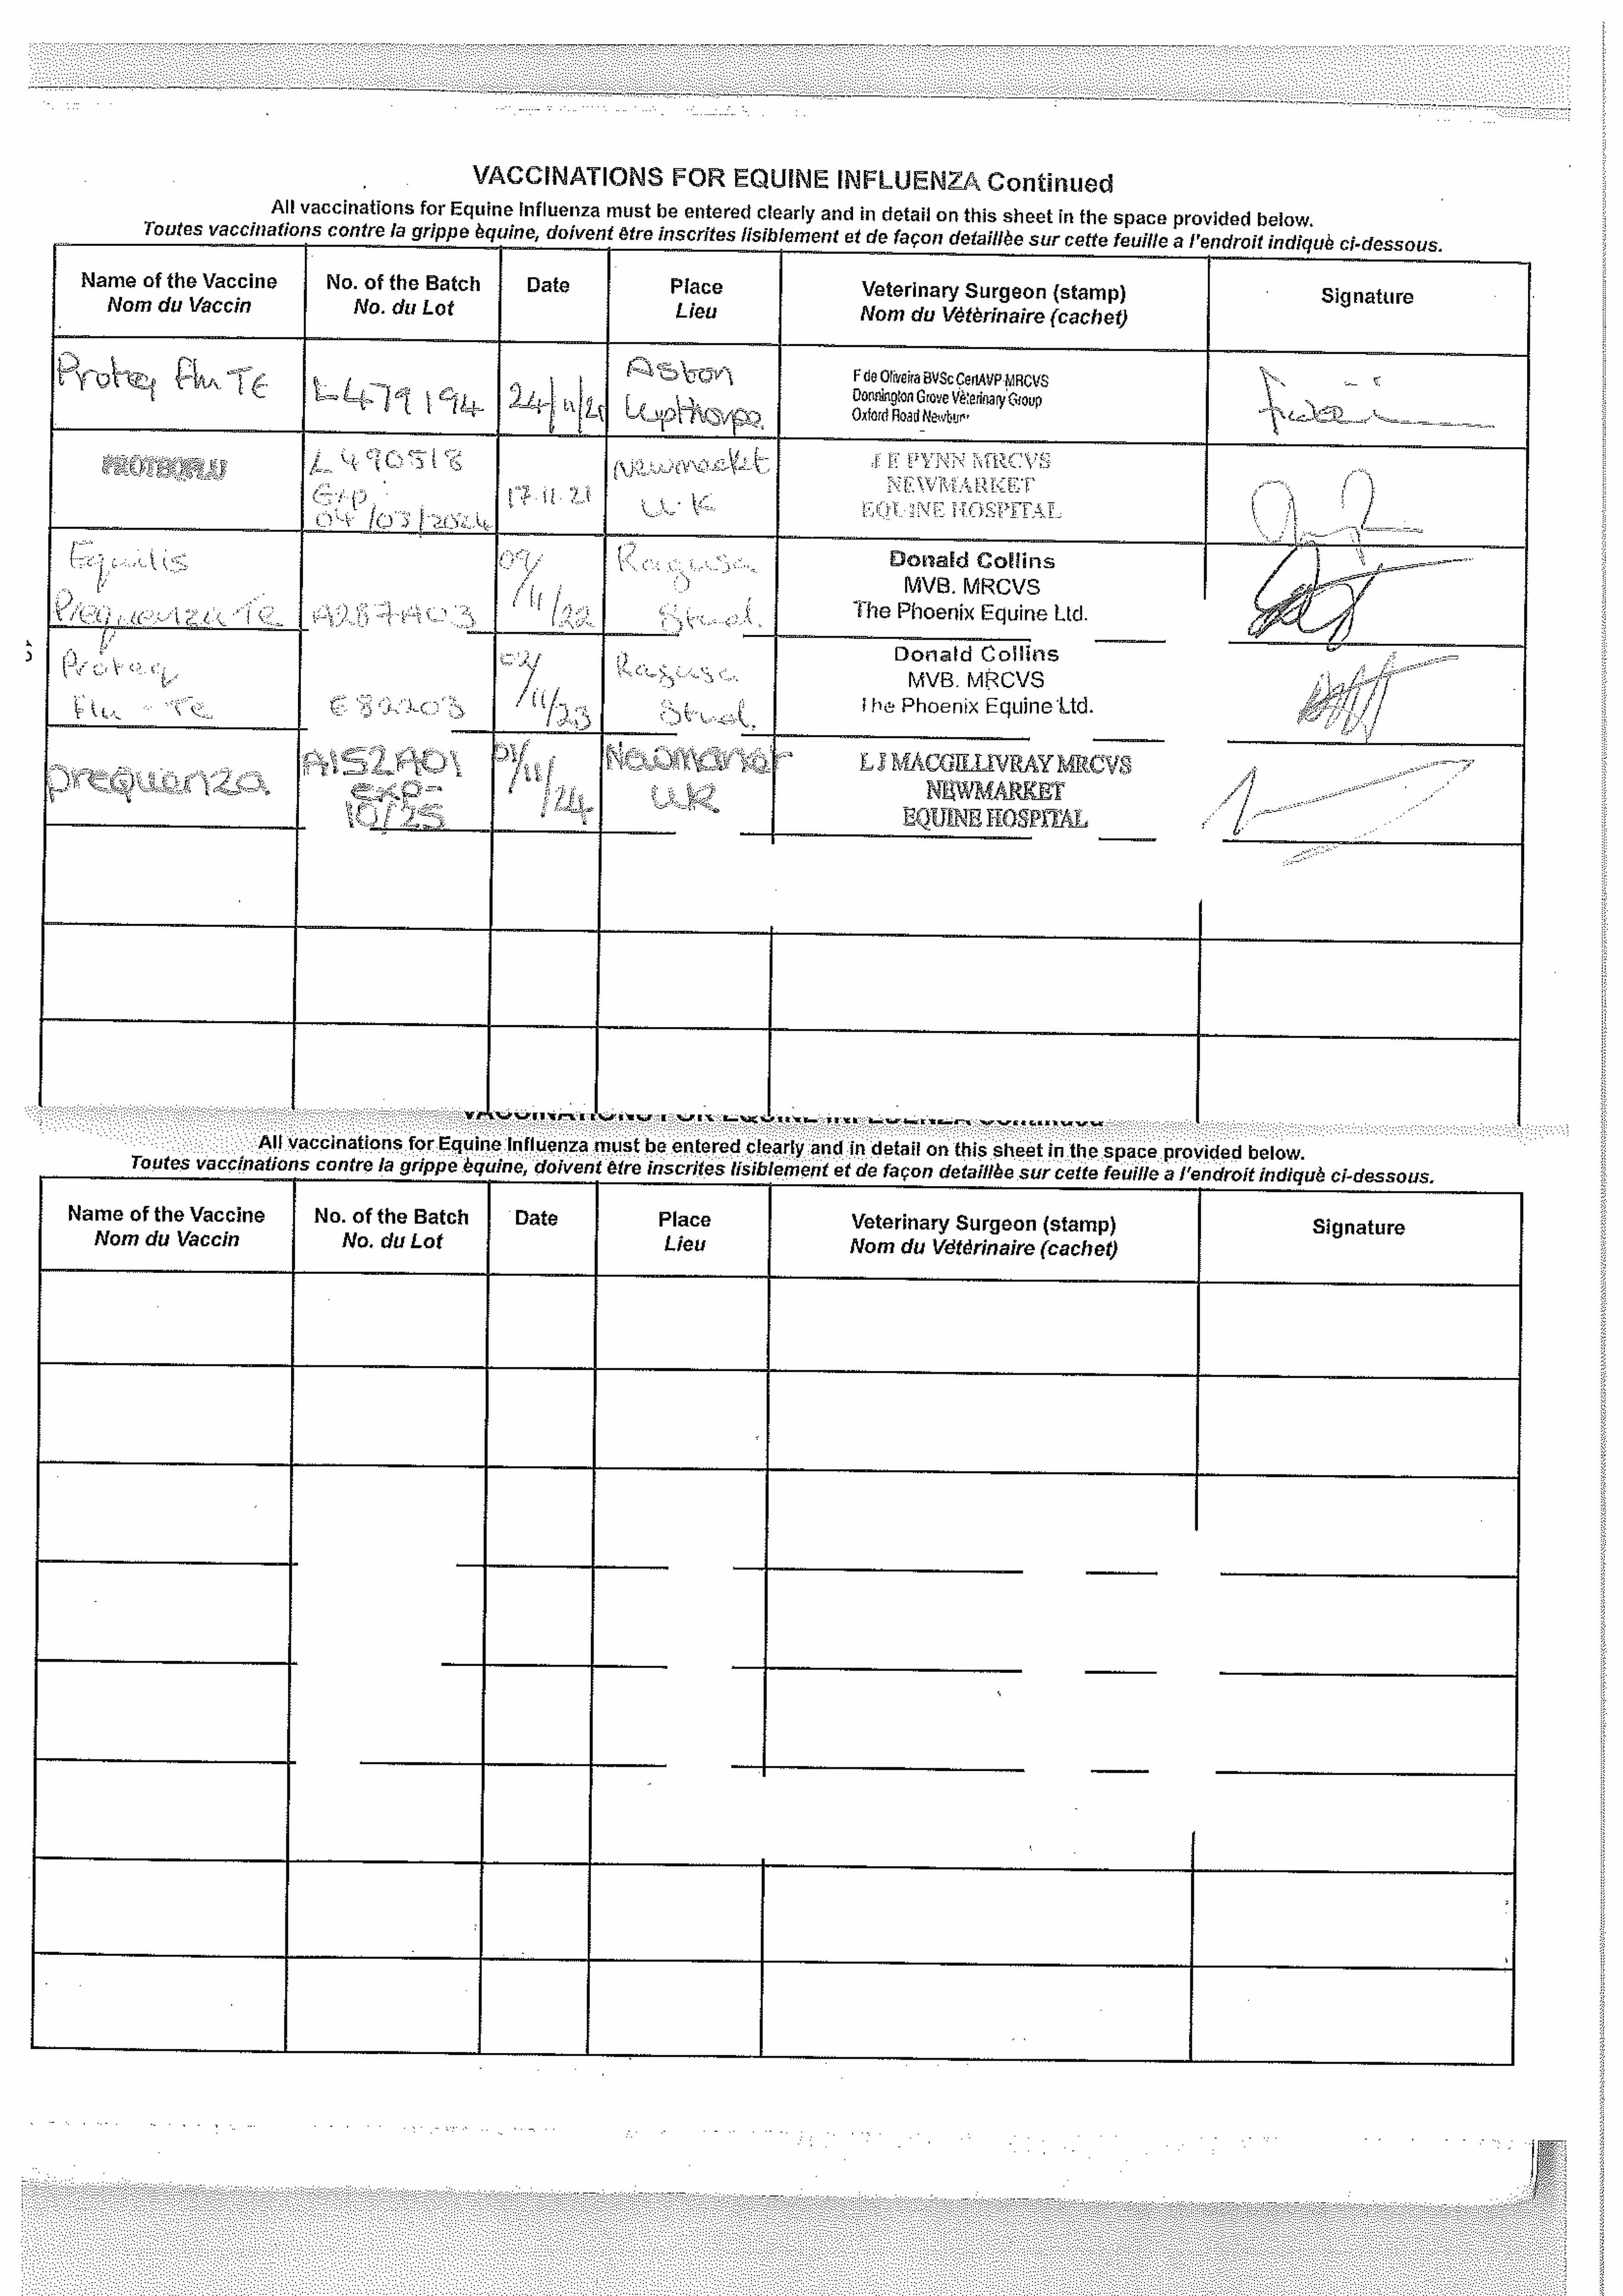 VACCINATIONS FOR EQUINE INFLUENZA Continued
All vaccinations for Equine Influenza must be entered clearly and in detail on this sheet in the space provided below.
Toutes vaccinations contre la grippe èquine, doivent être inscrites lisiblement et de façon detaillèe sur cette feuille a l'endroit indiquè ci-dessous.
Name of the Vaccine No. of the Batch Date Place Veterinary Surgeon (stamp) Signature
Nom du Vaccin No. du Lot Lieu Nom du Vètèrinaire (cachet)
Proteq Flu TE L479194 Aston
F de Oliveira BVSc CertAVP MRCVS
Donnington Grove Veterinary Group
Oxford Road Newbury
PROTEQFLU L490518 17.11.21 Newmarket J E PYNN MRCVS
Exp U.K NEWMARKET
04/03/2024 EQUINE HOSPITAL
Equilis 09/ Ragusa Donald Collins
Prequenza Te A287A03 /11/22 Stud. MVB. MRCVS
The Phoenix Equine Ltd.
Proteq 02/ Ragusa Donald Collins
Flu - Te E82203 /11/23 Stud. MVB. MRCVS
The Phoenix Equine Ltd.
prequenza A152A01 01/11/24 Newmarket L J MACGILLIVRAY MRCVS
exp- UK NEWMARKET
10/25 EQUINE HOSPITAL
VACCINATIONS FOR EQUINE INFLUENZA Continued
All vaccinations for Equine Influenza must be entered clearly and in detail on this sheet in the space provided below.
Toutes vaccinations contre la grippe èquine, doivent être inscrites lisiblement et de façon detaillèe sur cette feuille a l'endroit indiquè ci-dessous.
Name of the Vaccine No. of the Batch Date Place Veterinary Surgeon (stamp) Signature
Nom du Vaccin No. du Lot Lieu Nom du Vétèrinaire (cachet)